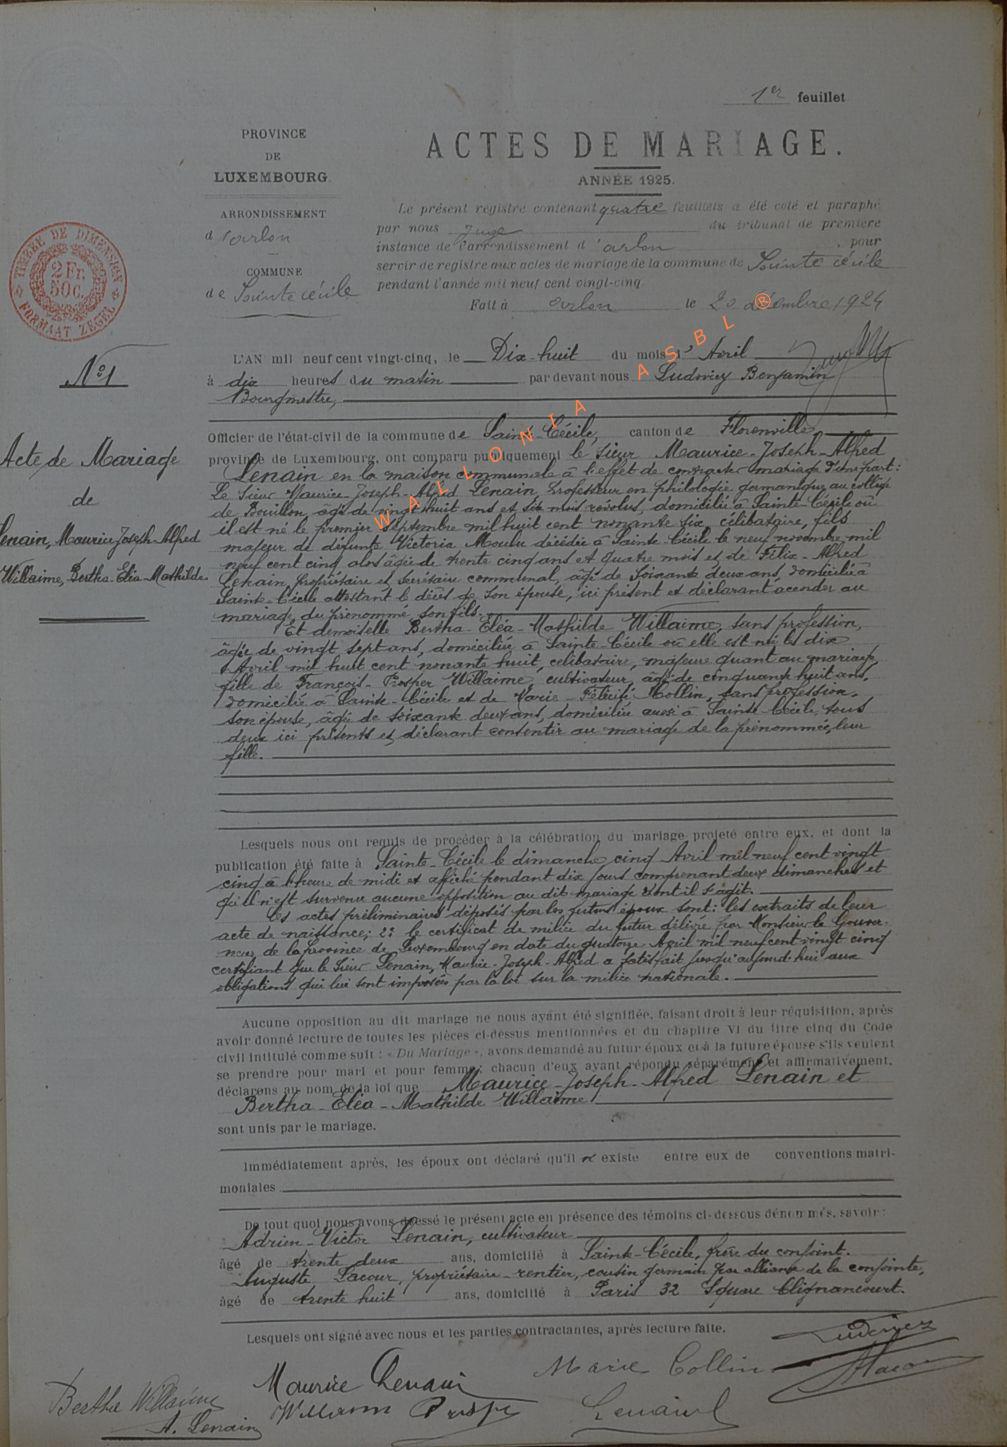 1er feuillet
PROVINCE
DE
LUXEMBOURG.
ACTES DE MARIAGE.
ANNÉE 1925.
ARRONDISSEMENT
d'arlon
COMMUNE
de Sainte cécile
TIMBRE DE DIMENSION
2 Fr. 50c.
FORMAAT ZEGEL
Le présent registre contenant quatre feuillets a été coté et paraphé
par nous Juge du tribunal de première
instance de l'arrondissement d'arlon, pour
servir de registre aux actes de mariage de la commune de Sainte cécile
pendant l'année mil neuf cent vingt-cinq.
Fait à arlon le 20 décembre 1924
WALLONIA ASBL ®
No 1
L'AN mil neuf cent vingt-cinq, le Dix-huit du mois d'Avril
à dix heures du matin par devant nous Ludwig Benjamin
Bourgmestre,
Officier de l'état-civil de la commune de Sainte-Cécile, canton de Florenville,
province de Luxembourg, ont comparu publiquement le Sieur Maurice-Joseph-Alfred
Lenain en la maison communale à l'effet de contracter mariage d'une part:
Le Sieur Maurice-Joseph-Alfred Lenain, Professeur en philologie germanique au collège
de Bouillon, âgé de vingt huit ans et six mois révolus, domicilié à Sainte-Cécile où
il est né le premier septembre mil huit cent nonante six, célibataire, fils
majeur de défunte Victoria Moulu décédée à Sainte Cécile le neuf novembre mil
neuf cent cinq alors âgée de trente cinq ans et quatre mois et de Félix-Alfred
Lenain, propriétaire et secrétaire communal, âgé de soixante deux ans, domicilié à
Sainte-Cécile attestant le décès de son épouse, ici présent et déclarant accéder au
mariage du prénommé son fils.
Et demoiselle Bertha-Eléa-Mathilde Willaime, sans profession,
âgée de vingt sept ans, domiciliée à Sainte-Cécile où elle est née le dix
Avril mil huit cent nonante huit, célibataire, majeure quant au mariage,
fille de François-Prosper Willaime, cultivateur, âgé de cinquante huit ans,
domicilié à Sainte-Cécile et de Marie-Félicité Collin, sans profession,
son épouse, âgée de soixante deux ans, domiciliée aussi à Sainte Cécile, tous
deux ici présents et déclarant consentir au mariage de la prénommée, leur
fille.
Acte de Mariage
de
Lenain, Maurice Joseph-Alfred
Willaime, Bertha-Eléa-Mathilde
Lesquels nous ont requis de procéder à la célébration du mariage projeté entre eux, et dont la
publication été faite à Sainte-Cécile le dimanche cinq Avril mil neuf cent vingt
cinq à l'heure de midi et affiché pendant dix jours comprenant deux dimanches et
qu'il n'est survenu aucune opposition au dit mariage dont il s'agit.
Les actes préliminaires déposés par les futurs époux sont: les extraits de leur
acte de naissance; 2º le certificat de milice du futur délivré par Monsieur le Gouver-
neur de la Province de Luxembourg en date du quatorze Avril mil neuf cent vingt cinq
certifiant que le Sieur Lenain, Maurice-Joseph-Alfred a satisfait jusqu'aujourd'hui aux
obligations qui lui sont imposées par la loi sur la milice nationale.
Aucune opposition au dit mariage ne nous ayant été signifiée, faisant droit à leur réquisition, après
avoir donné lecture de toutes les pièces ci-dessus mentionnées et du chapitre VI du titre cinq du Code
civil intitulé comme suit : « Du Mariage », avons demandé au futur époux et à la future épouse s'ils veulent
se prendre pour mari et pour femme; chacun d'eux ayant répondu séparément et affirmativement,
déclarons au nom de la loi que Maurice-Joseph-Alfred Lenain et
Bertha-Eléa-Mathilde Willaime
sont unis par le mariage.
Immédiatement après, les époux ont déclaré qu'il n'existe entre eux de conventions matri-
moniales
De tout quoi nous avons dressé le présent acte en présence des témoins ci-dessous dénommés, savoir:
Adrien-Victor Lenain, cultivateur
âgé de trente deux ans, domicilié à Sainte-Cécile, frère du conjoint.
Auguste Lacour, propriétaire-rentier, cousin germain par alliance de la conjointe,
âgé de trente huit ans, domicilié à Paris 32 Square Clignancourt.
Lesquels ont signé avec nous et les parties contractantes, après lecture faite.
Ludwig
Marie Collin
ALacour
Maurice Lenain
Bertha Willaime
Willaime Prosper
Lenain
A. Lenain